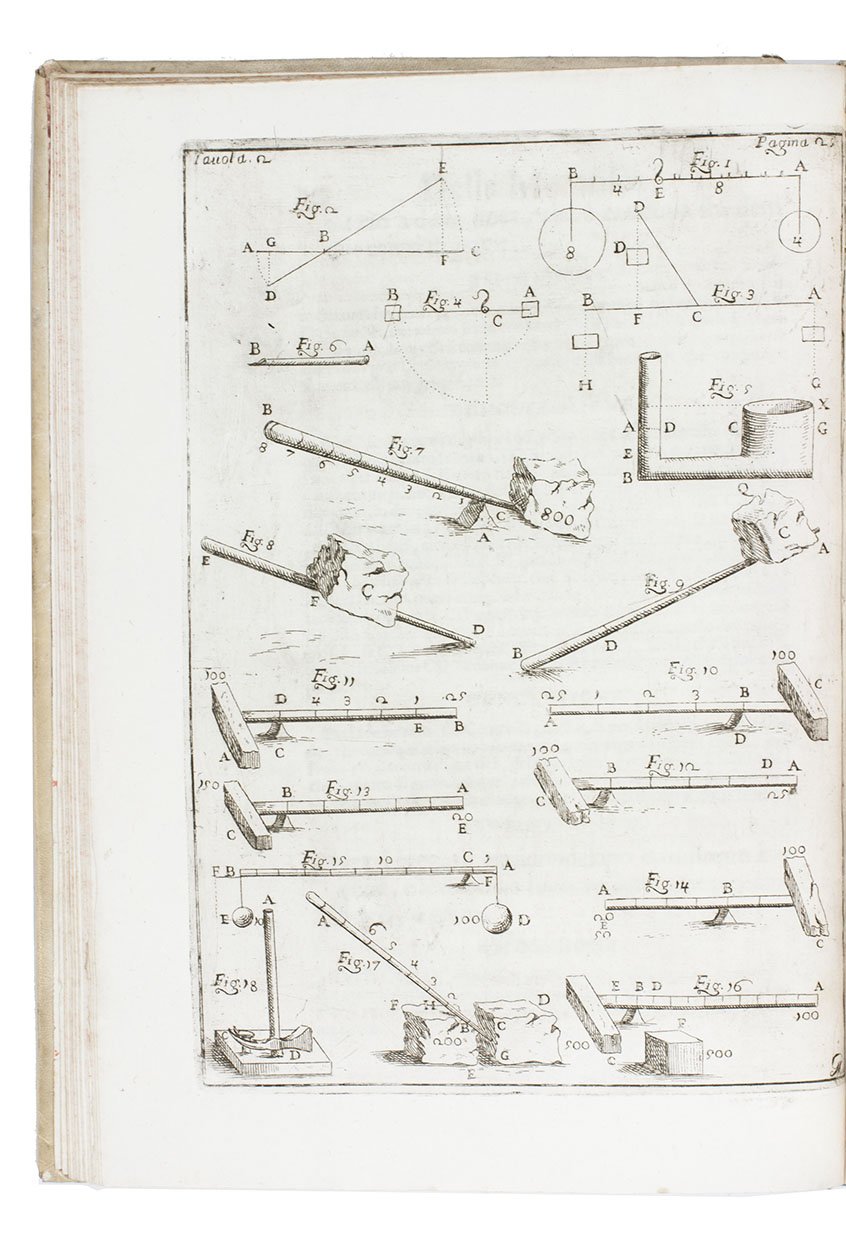 Tavola. 2
Pagina 25
E
Fig. 2
A G B F C
D
B 4 E Fig. 1 8 A
8 4
D
D
Fig. 3
B F C A
H G
B Fig. 4 C A
B Fig. 6 A
Fig. 5
X
A D C G
E
B
B
8 7 6 5 4 3 2 1
Fig. 7
C
A
800
Fig. 8
E
F
C
D
Fig. 9
C
A
D
B
100
Fig. 11
D 4 3 2 1 25
A C E B
Fig. 10
100
25 1 2 3 B C
A D
150
Fig. 13
B A
C 20
E
100
Fig. 12
B D A
C 25
Fig. 15
F B 10 C 1 A
F
E 100 D
Fig. 14
100
A B
20
E
50
C
Fig. 18
A
D
Fig. 17
A
6 5 4 3 2
F H D
B C
200
G
E
Fig. 16
E B D A
100
500
C
F
500